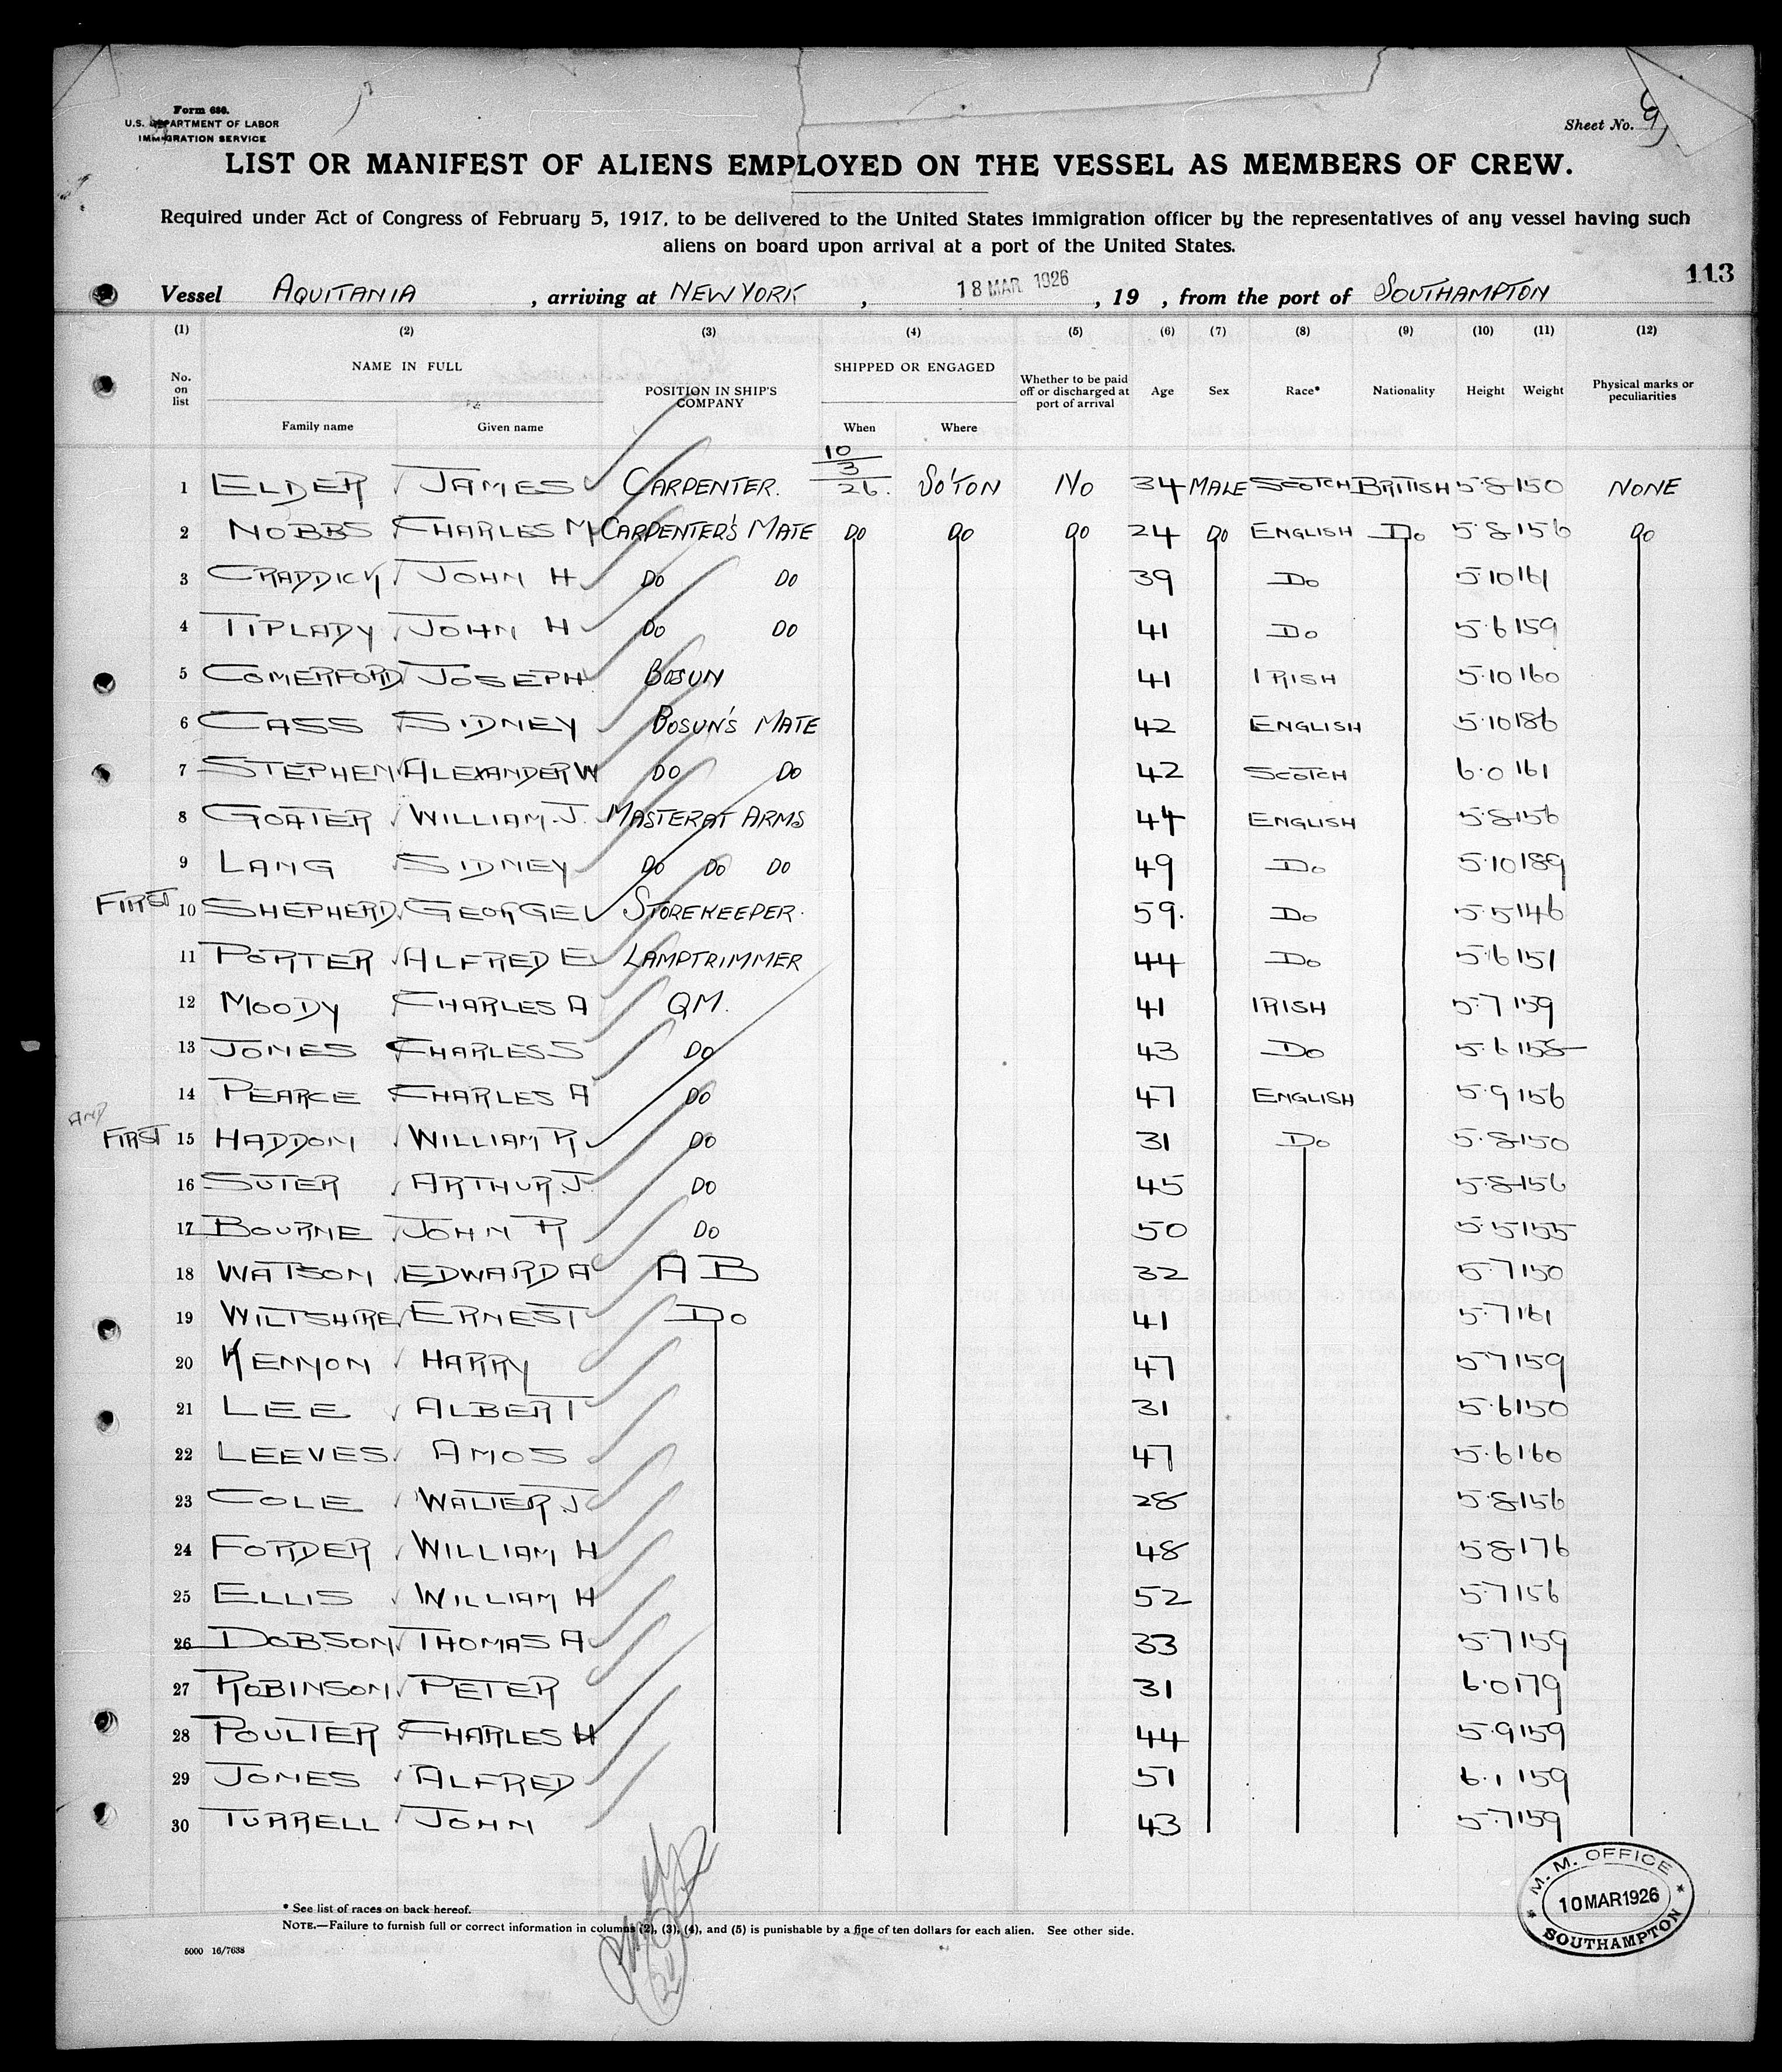 Form 686.
U.S. DEPARTMENT OF LABOR
IMMIGRATION SERVICE
Sheet No. 9
LIST OR MANIFEST OF ALIENS EMPLOYED ON THE VESSEL AS MEMBERS OF CREW.
Required under Act of Congress of February 5, 1917, to be delivered to the United States immigration officer by the representatives of any vessel having such
aliens on board upon arrival at a port of the United States.
113
Vessel AQUITANIA, arriving at NEW YORK, 18 MAR 1926, 19 , from the port of SOUTHAMPTON
(1) (2) (3) (4) (5) (6) (7) (8) (9) (10) (11) (12)
No. on list NAME IN FULL Family name Given name POSITION IN SHIP'S COMPANY SHIPPED OR ENGAGED When Where Whether to be paid off or discharged at port of arrival Age Sex Race* Nationality Height Weight Physical marks or peculiarities
1 ELDER JAMES CARPENTER. 10/3/26. SO'TON NO 34 MALE SCOTCH BRITISH 5·8 150 NONE
2 NOBBS CHARLES M CARPENTER'S MATE DO DO DO 24 DO ENGLISH DO 5·8 156 DO
3 CRADDICK JOHN H DO DO 39 DO 5·10 161
4 TIPLADY JOHN H DO DO 41 DO 5·6 159
5 COMERFORD JOSEPH BOSUN 41 IRISH 5·10 160
6 CASS SIDNEY BOSUN'S MATE 42 ENGLISH 5·10 186
7 STEPHEN ALEXANDER W DO DO 42 SCOTCH 6·0 161
8 GOATER WILLIAM.J. MASTER AT ARMS 44 ENGLISH 5·8 156
9 LANG SIDNEY DO DO DO 49 DO 5·10 189
FIRST 10 SHEPHERD GEORGE STOREKEEPER. 59. DO 5·5 146
11 PORTER ALFRED E LAMPTRIMMER 44 DO 5·6 151
12 MOODY CHARLES A QM. 41 IRISH 5·7 159
13 JONES CHARLES S DO 43 DO 5·6 158
14 PEARCE CHARLES A DO 47 ENGLISH 5·9 156
AND
FIRST 15 HADDON WILLIAM R DO 31 DO 5·8 150
16 SUTER ARTHUR.J. DO 45 5·8 156
17 BOURNE JOHN R DO 50 5·5 155
18 WATSON EDWARD A A B 32 5·7 150
19 WILTSHIRE ERNEST DO 41 5·7 161
20 KENYON HARRY 47 5·7 159
21 LEE ALBERT 31 5·6 150
22 LEEVES AMOS 47 5·6 160
23 COLE WALTER.J 28 5·8 156
24 FORDER WILLIAM H 48 5·8 176
25 ELLIS WILLIAM H 52 5·7 156
26 DOBSON THOMAS A 33 5·7 159
27 ROBINSON PETER 31 6·0 179
28 POULTER CHARLES H 44 5·9 159
29 JONES ALFRED 51 6·1 159
30 TURRELL JOHN 43 5·7 159
M. M. OFFICE
10 MAR 1926
SOUTHAMPTON
* See list of races on back hereof.
NOTE.—Failure to furnish full or correct information in columns (2), (3), (4), and (5) is punishable by a fine of ten dollars for each alien. See other side.
5000 16/7638